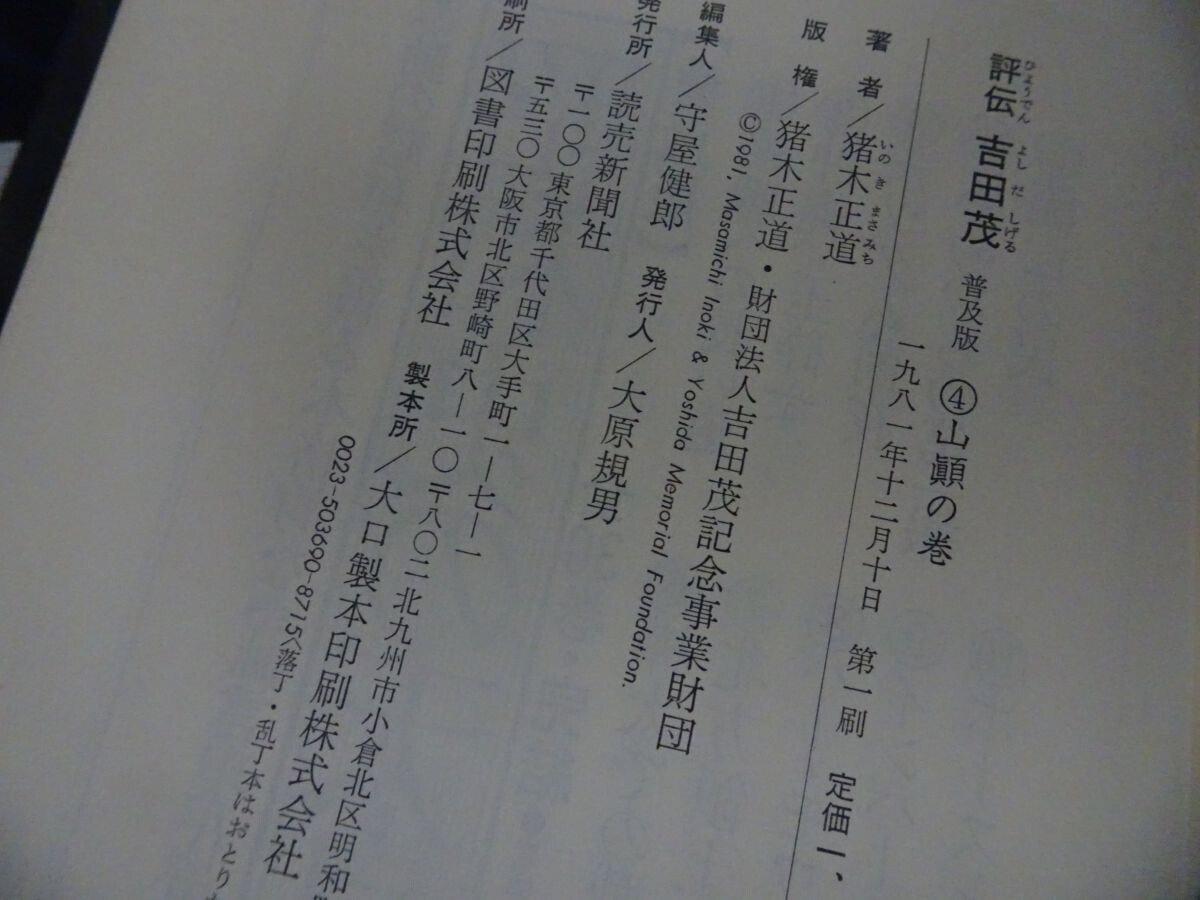 評伝 吉田茂 普及版 ④山顚の巻
ひょうでん よしだ しげる
一九八一年十二月十日 第一刷 定価一、
著者／猪木正道
いのき まさみち
版権／猪木正道・財団法人吉田茂記念事業財団
©1981, Masamichi Inoki & Yoshida Memorial Foundation.
編集人／守屋健郎 発行人／大原規男
発行所／読売新聞社
〒一〇〇 東京都千代田区大手町一―七―一
〒五三〇 大阪市北区野崎町八―一〇 〒八〇二 北九州市小倉北区明和
刷所／図書印刷株式会社 製本所／大口製本印刷株式会社
0023-503690-8715〈落丁・乱丁本はおとり